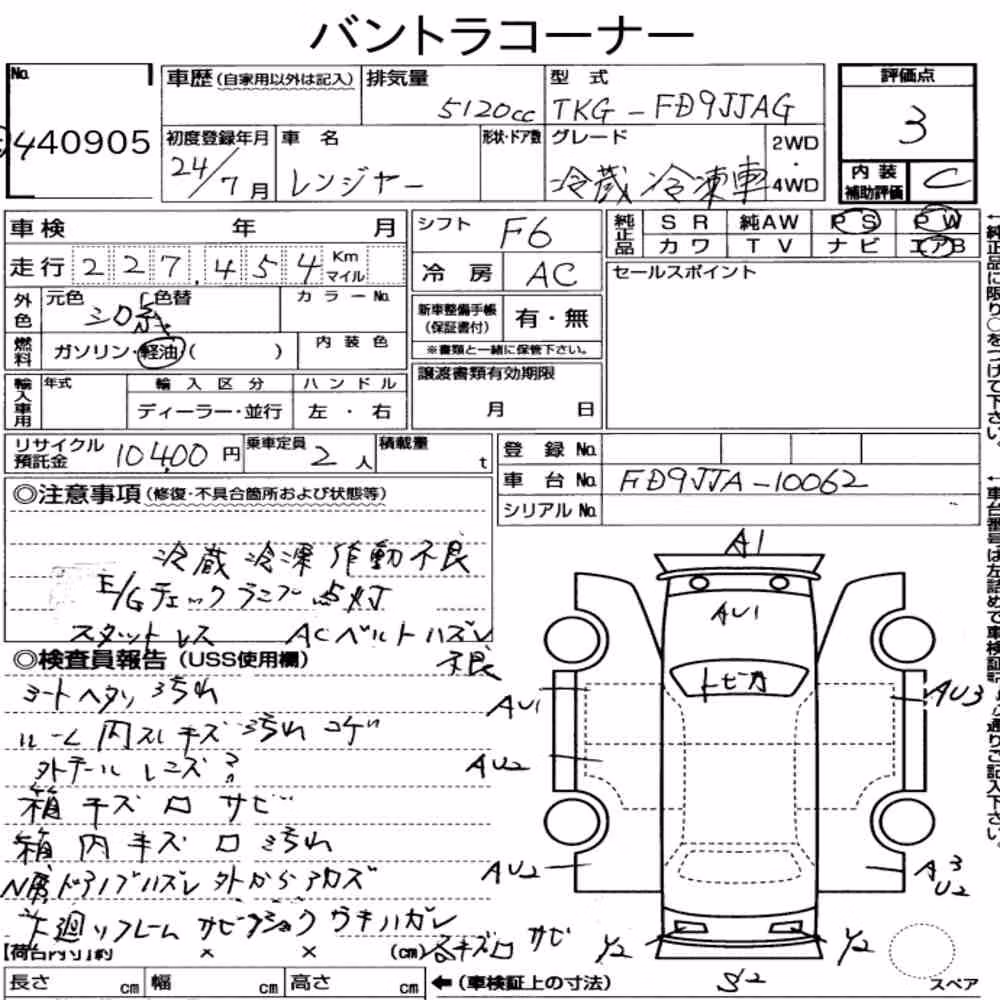 バントラコーナー
No. 440905
車歴(自家用以外は記入)
排気量 5120cc
型式 TKG-FD9JJAG
評価点 3
初度登録年月 24/7月
車名 レンジャー
形状・ドア数
グレード 冷蔵冷凍車
2WD・4WD
内装補助評価 C
車検 年 月
シフト F6
純正品 SR 純AW PS PW
カワ TV ナビ エアB
走行 227,454 Km マイル
冷房 AC
セールスポイント
外色 元色 シロ系 色替 カラーNo.
新車整備手帳(保証書付) 有・無
※書類と一緒に保管下さい。
燃料 ガソリン・軽油( ) 内装色
譲渡書類有効期限
月 日
輸入車用 年式 輸入区分 ハンドル
ディーラー・並行 左・右
リサイクル預託金 10400円
乗車定員 2人
積載量 t
登録No.
車台No. FD9JJA-10062
シリアルNo.
◎注意事項(修復・不具合箇所および状態等)
冷蔵冷凍作動不良
E/Gチェックランプ点灯
スタットレス ACベルトハズレ
◎検査員報告(USS使用欄)
不良
シートヘタリ ヨゴれ
ルーム内スレキズ ヨゴれ コゲ
外テールレンズ
箱キズロ サビ
箱内キズロ ヨゴれ
下廻りフレームサビ
サビ
A1
AU1
トビカ
AU1
AU3
AU2
AU2
A3
U2
Y2
Y2
S2
スペア
× × (cm)
長さ cm 幅 cm 高さ cm ←(車検証上の寸法)
←純正品に限り○をつけて下さい。